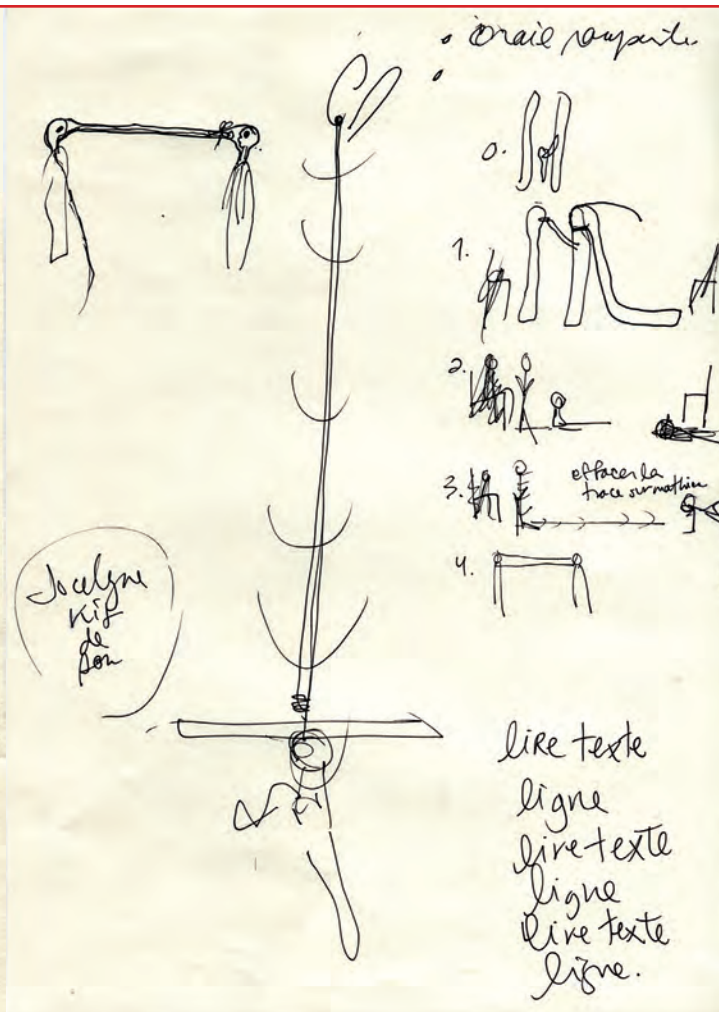 0.
1.
2.
3.
effacer la
trace sur mathieu
4.
Jocelyne
Kit
de
son
lire texte
ligne
lire texte
ligne
lire texte
ligne.